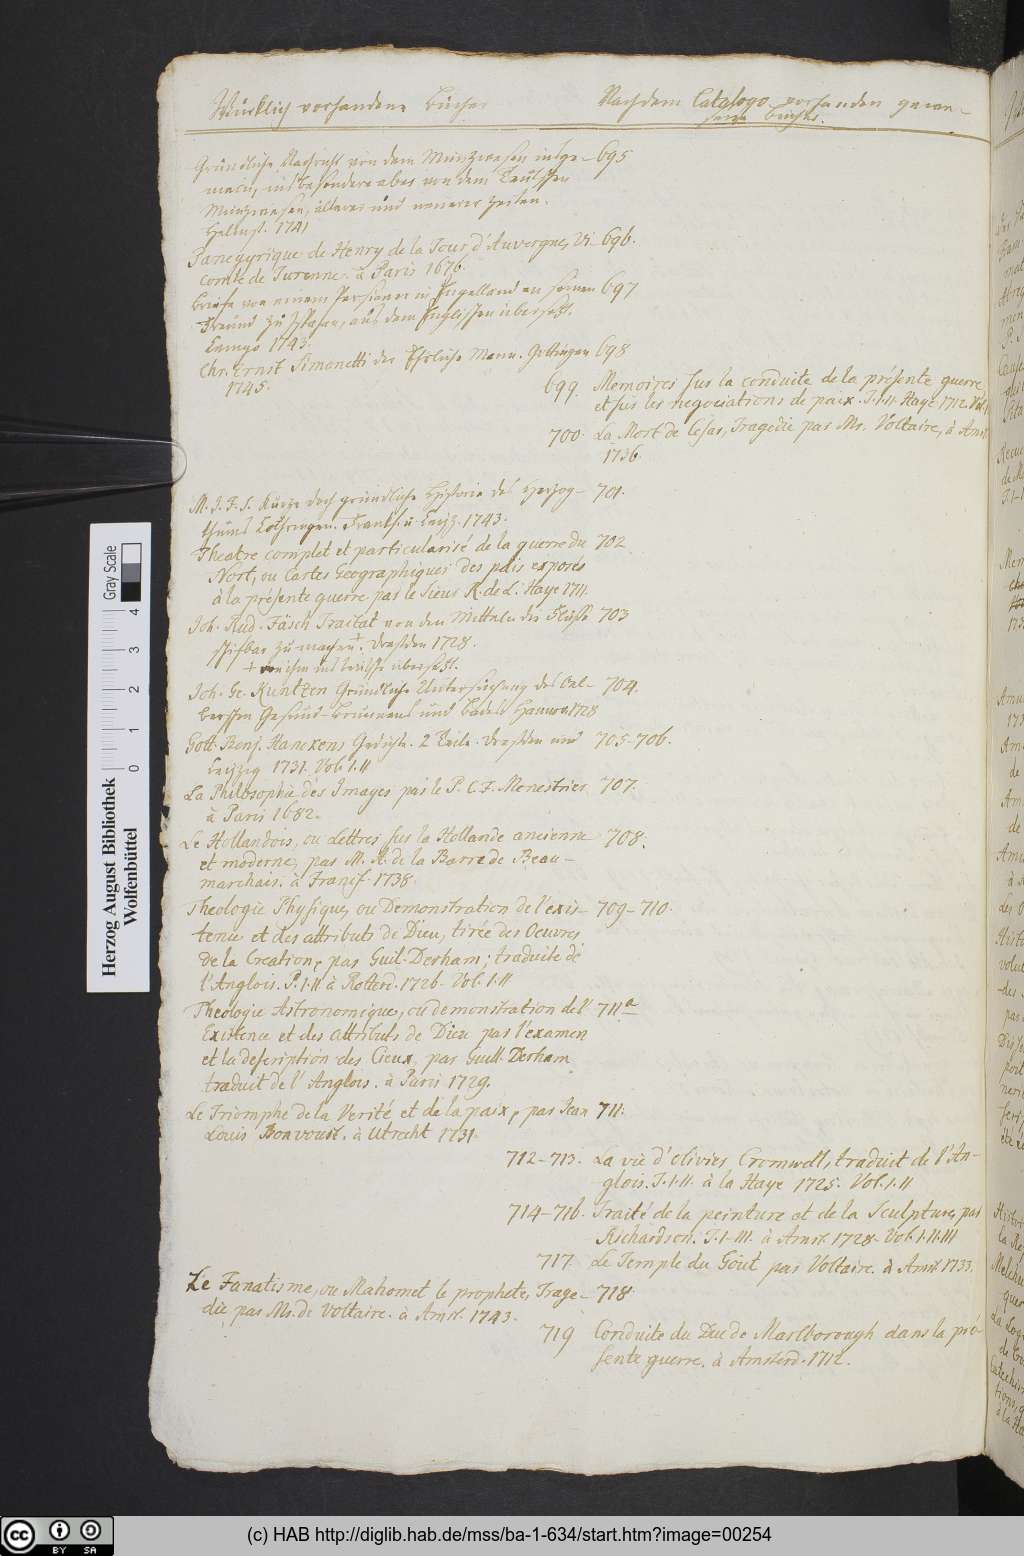 Würklich vorhandene Bücher
Nach dem Catalogo vorhanden gewe-
sene Bücher.
Gründliche Nachricht von dem Münzwesen insge- 695
mein, insbesondere aber von dem Teutschen
Münzwesen, älterer und neuerer Zeiten.
Helmst. 1741
Panegyrique de Henry de la Tour d'Auvergne, Vi- 696.
comte de Turenne. à Paris 1676.
Briefe von einem Persianer in Engelland an seinen 697
Freund zu Ispahan, aus dem Englischen übersetzt.
Lemgo 1743.
Chr. Ernst Simonetti der Ehrliche Mann. Göttingen 698
1745.
699. Memoires sur la conduite de la présente guerre
et sur les negociations de paix. T. I. II. Haye 1712. Vol. I
700. La Mort de Cesar, Tragedie par Mr. Voltaire, à Amst.
1736.
M. J. F. S. Kurze doch gründliche Historie des Herzog- 701.
thums Lothringen. Frankf. u. Leipz. 1743.
Theatre complet et particularisé de la guerre du 702
Nort, ou Cartes Geographiques des païs exposés
à la présente guerre par le Sieur R. de L. Haye 1711.
Joh. Rud. Fäsch Traitat von den Mitteln die Flüße 703
schifbar zu machen. + Dresden 1728.
+ von ihm ins teutsche übersetzt.
Joh. Ge. Kuntzen Gründliche Untersuchung des Oel- 704.
berschen Gesund-Brunnens und Bades Hannov. 1728
Gott. Benj. Hanckens Gedichte. 2 Teile. Dresden und 705-706.
Leipzig 1731. Vol. I. II
La Philosophie des Images par le P. C. F. Menestrier 707.
à Paris 1682.
Le Hollandois, ou Lettres sur la Hollande ancienne 708.
et moderne, par M. A. de la Barre de Beau-
marchais. à Francf. 1738.
Theologie Physique, ou Demonstration de l'exis- 709-710.
tence et des attributs de Dieu, tirée des Oeuvres
de la Creation, par Guil. Derham; traduite de
l'Anglois. P. I. II à Rotterd. 1726. Vol. I. II
Theologie Astronomique, ou demonstration de l' 711a
Existence et des attributs de Dieu par l'examen
et la description des Cieux, par Guill. Derham,
traduit de l'Anglois. à Paris 1729.
Le Triomphe de la Verité et de la paix, par Jean 711.
Louis Bonvoust. à Utrecht 1731.
712-713. La vie d'Olivier Cromwell, traduit de l'An-
glois. T. I. II. à la Haye 1725. Vol. I. II
714-716. Traité de la peinture et de la Sculpture, par
Richardson. T. I-III. à Amst. 1728. Vol. I. II. III
717. Le Temple du Goût par Voltaire. à Amst. 1733.
Le Fanatisme, ou Mahomet le prophete, Trage- 718.
die par Mr. de Voltaire. à Amst. 1743.
719 Conduite du Duc de Marlborough dans la pré-
sente guerre. à Amsterd. 1712.
Gray Scale
0 1 2 3 4
Herzog August Bibliothek
Wolfenbüttel
cc BY SA
(c) HAB http://diglib.hab.de/mss/ba-1-634/start.htm?image=00254